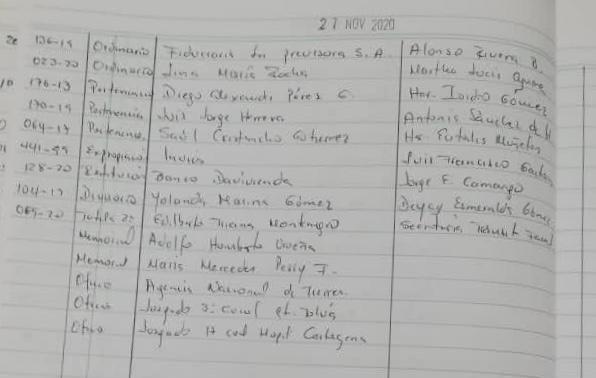 27 NOV 2020
136-19 Ordinario Fiduciaria La previsora S.A. Alonso Rivera B.
023-20 Ordinario Lina María Rocha Martha Lucia
176-13 Pertenencia Diego Alexander Pérez C. Her. Isidro Gómez
170-19 Pertenencia Luis Jorge Herrera Antonio Sánchez de
064-17 Pertenenc. Saúl Cristancho Gutierrez He.
441-99 Expropiación Luis Francisco
128-20 Restitución Banco Davivienda Jorge E. Camargo
104-17 Divisorio Yolanda Marina Gómez Deycy Esmeralda Gómez
069-20 Tutela 2ª Edilberto Triana Montenegro Secretaria
Memorial Adolfo Humberto
Memorial María Mercedes F.
Oficio Agencia Nacional de Tierras
Oficio Juzgado 3º
Oficio Juzgado Cartagena